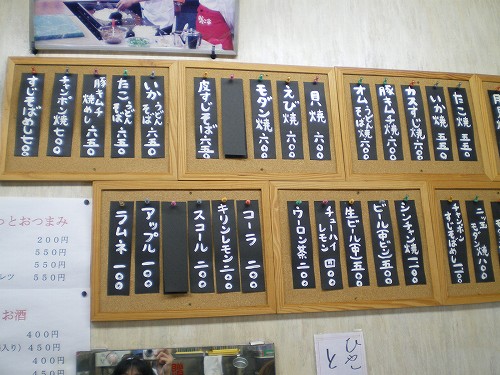 たこ焼 五五〇
いか焼 五五〇
カスすじ焼 六〇〇
豚キムチ焼 六〇〇
オムそば うどん 六〇〇
貝焼 六〇〇
えび焼 六〇〇
モダン焼 六〇〇
皮すじそば 六五〇
いか うどん そば 六五〇
たこ うどん そば 六五〇
豚キムチ焼めし 六五〇
チャンポン焼 七〇〇
すじそばめし 七〇〇
シンチャン焼
ビール(中ビン) 五〇〇
生ビール(中) 五〇〇
チューハイ レモン 四〇〇
ウーロン茶 二〇〇
コーラ 二〇〇
キリンレモン 二〇〇
スコール 二〇〇
アップル 一〇〇
ラムネ 一〇〇
っとおつまみ
200円
550円
550円
ンツ 550円
お酒
400円
450円
400円
450円
ひやこと